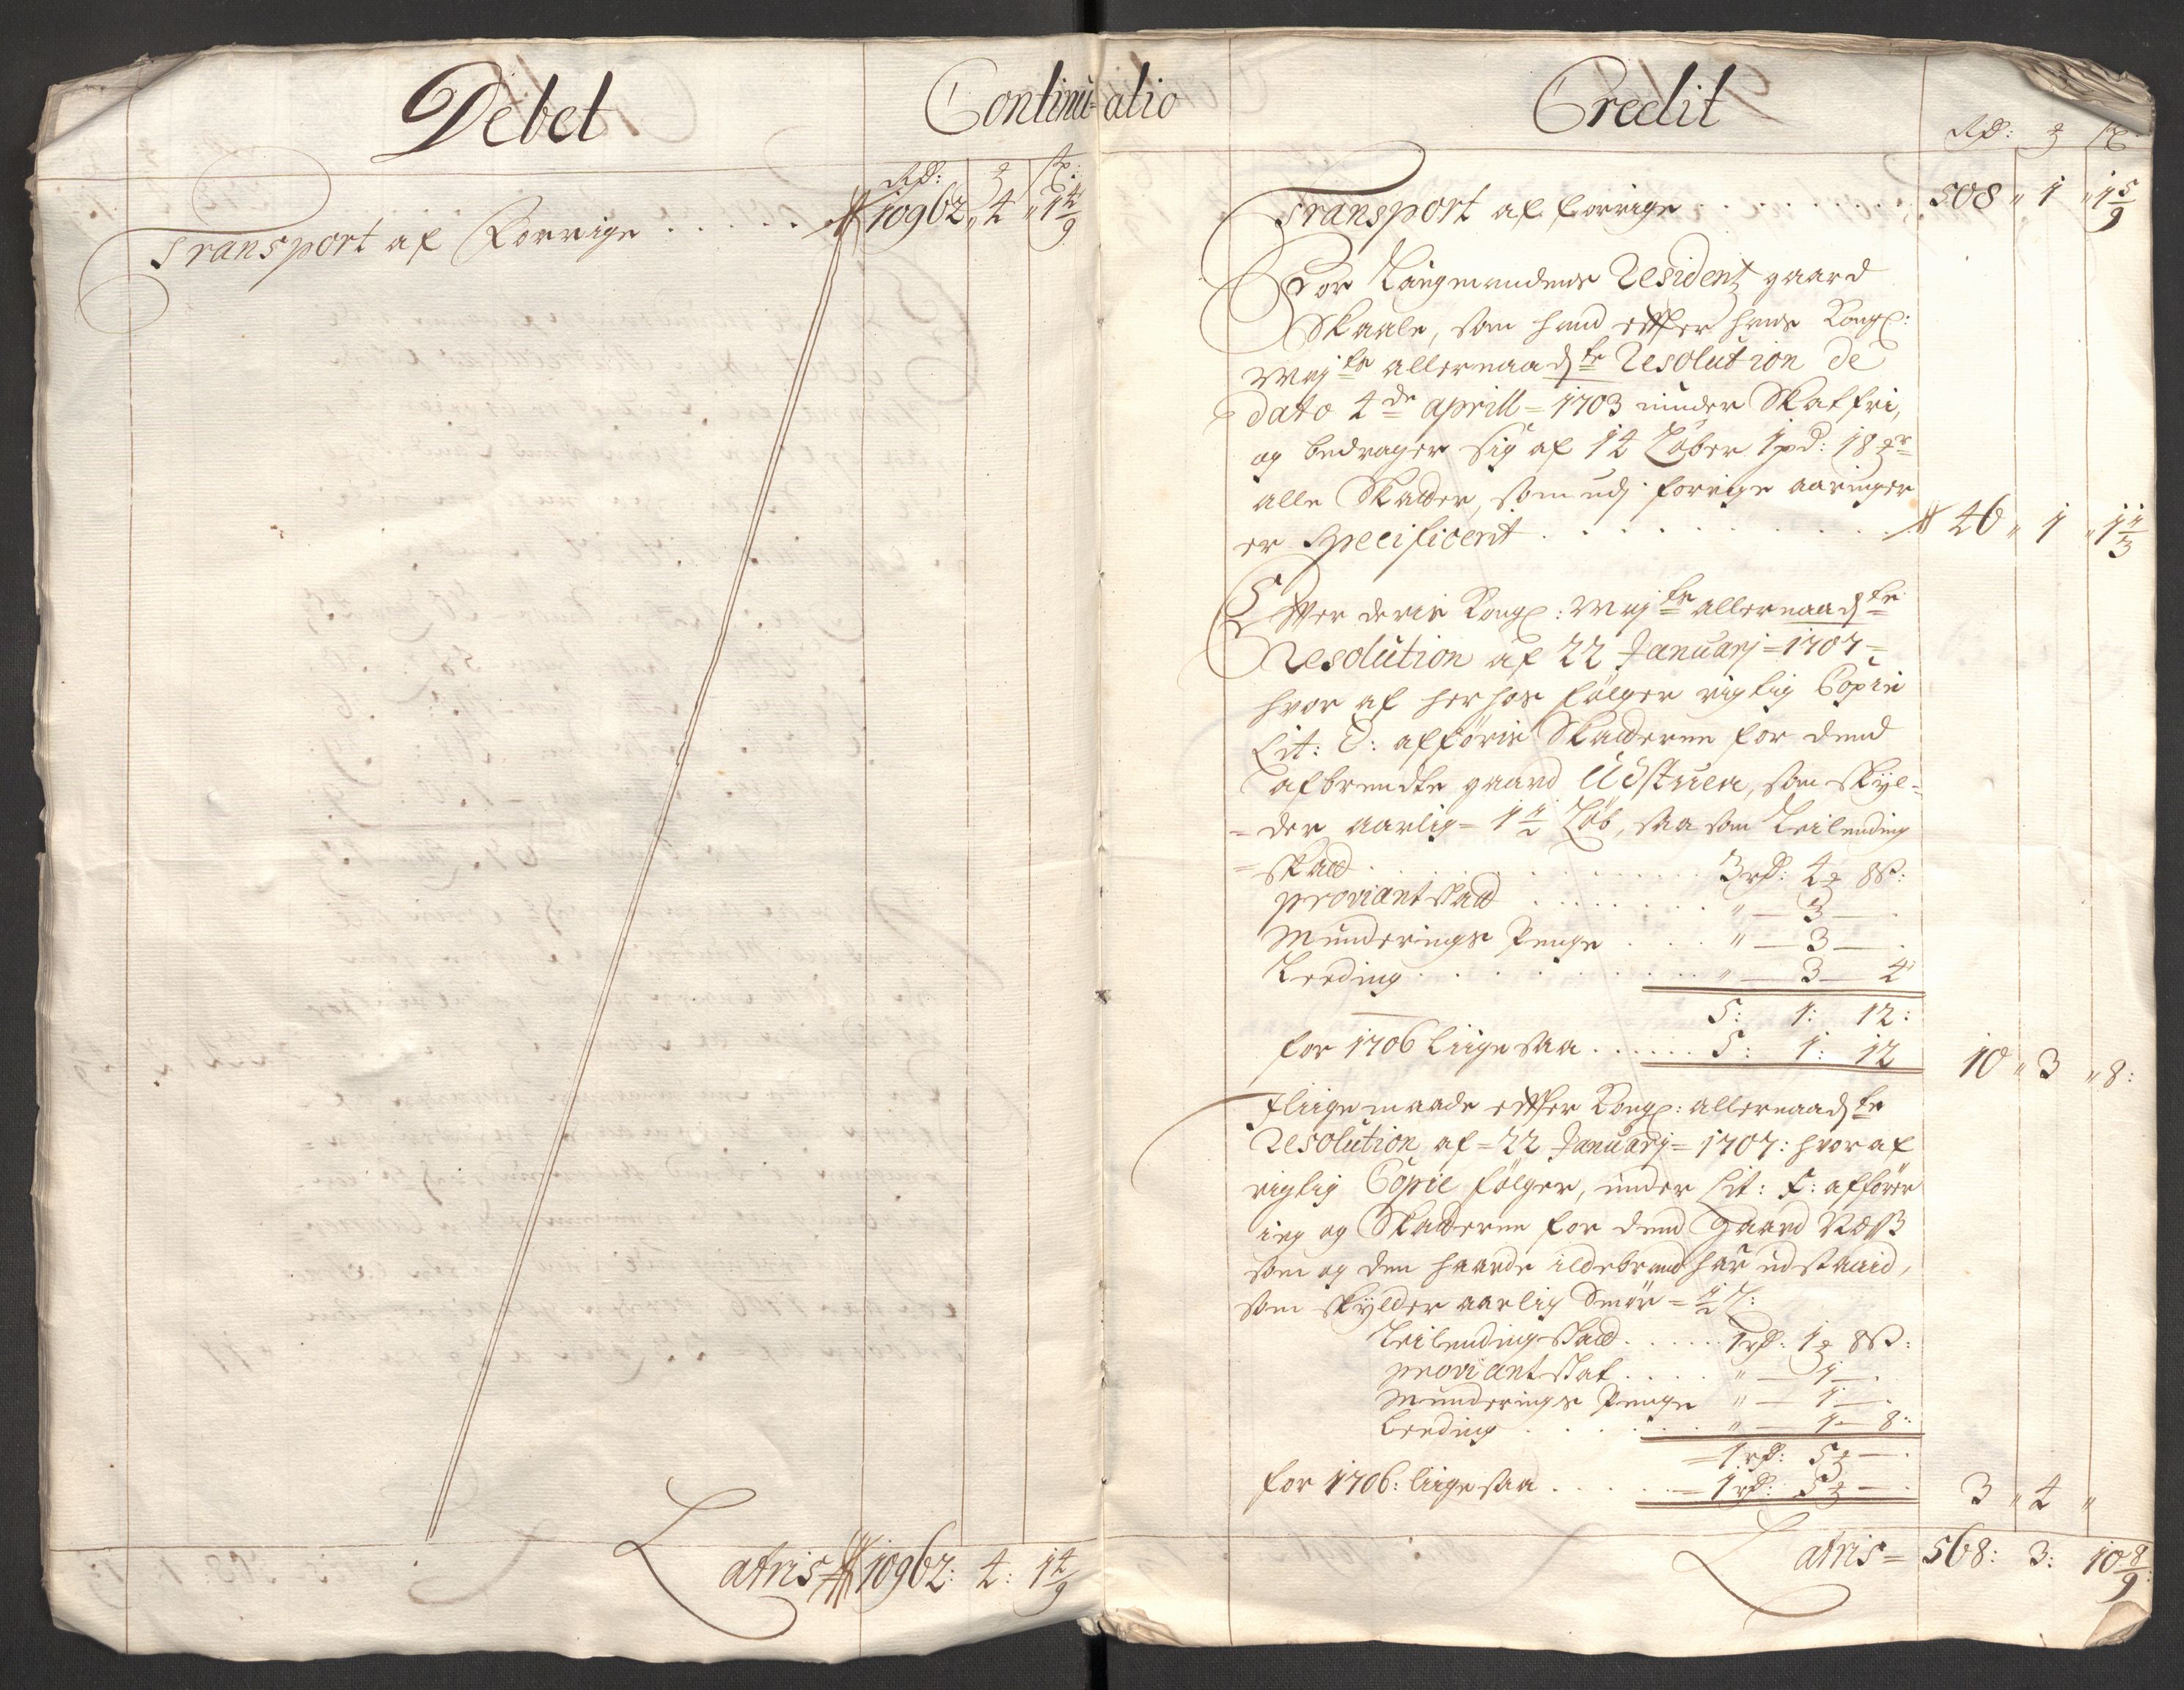 Debet
Continu-atio
Credit
Rd: ꝸ ß:
Transport af Forrige . . . . . 10962 „ 4 „ 1 4/9
Latris = 10962: 4: 1 4/9
Rd: ꝸ ß
Transport af forrige . . . . . . . . . 508 „ 1 „ 1 5/9
For Laugmandens Residentz gaard
Skaale, som hand efter hans Kongl:
Maj:ts allernaad:ste Resolution de
dato 4de aprill = 1703 niuder Skatfri,
og bedrager sig af 14 Løber 1pd: 18
alle Skatter, som udj forrige aaringer
er Specificerit . . . . . . . . . 46 „ 1 „ 1 1/3
Efter deris Kongl: Maj:ts allernaad:ste
Resolution af 22 Januarj = 1707 =
hvor af herhos følger rigtig Copie
Lit: E: afføris Skatterne for dend
afbrendte gaard Udstuen, som skyl=
=der aarlig = 1 1/2 Løb, saa som Leilending
=skatt . . . . . . . . . 3rd: 4ꝸ 8ß:
proviantskatt . . . . . . . „ — 3 — .
Munderings Penge . . . „ — 3 — .
Leeding . . . . . . . . . „ — 3 — 4
5: 1: 12:
for 1706 liige saa . . . . . . 5: 1: 12 10 „ 3 „ 8:
Iliigemaade efter Kongl: allernaad:ste
Resolution af = 22 Januarj = 1707: hvor af
rigtig Copie følger, under Lit: F: affører
ieg og Skatterne for dend Gaard Næss
som og den haarde ildebrand har udstaaid,
som skylder aarlig Smør = 1/2 L:
Leilendingskatt . . . . . 1rd: 1ꝸ 8ß:
proviantskat . . . . . „ — 1 — .
Munderings Penge „ — 1 — .
Leeding . . . . . . „ — 1 — 8:
= 1rd: 5ꝸ — .
for 1706: liige saa . . . . . = 1rd: 5ꝸ — . 3 „ 4 „
Latris = 568: 3: 10 8/9: